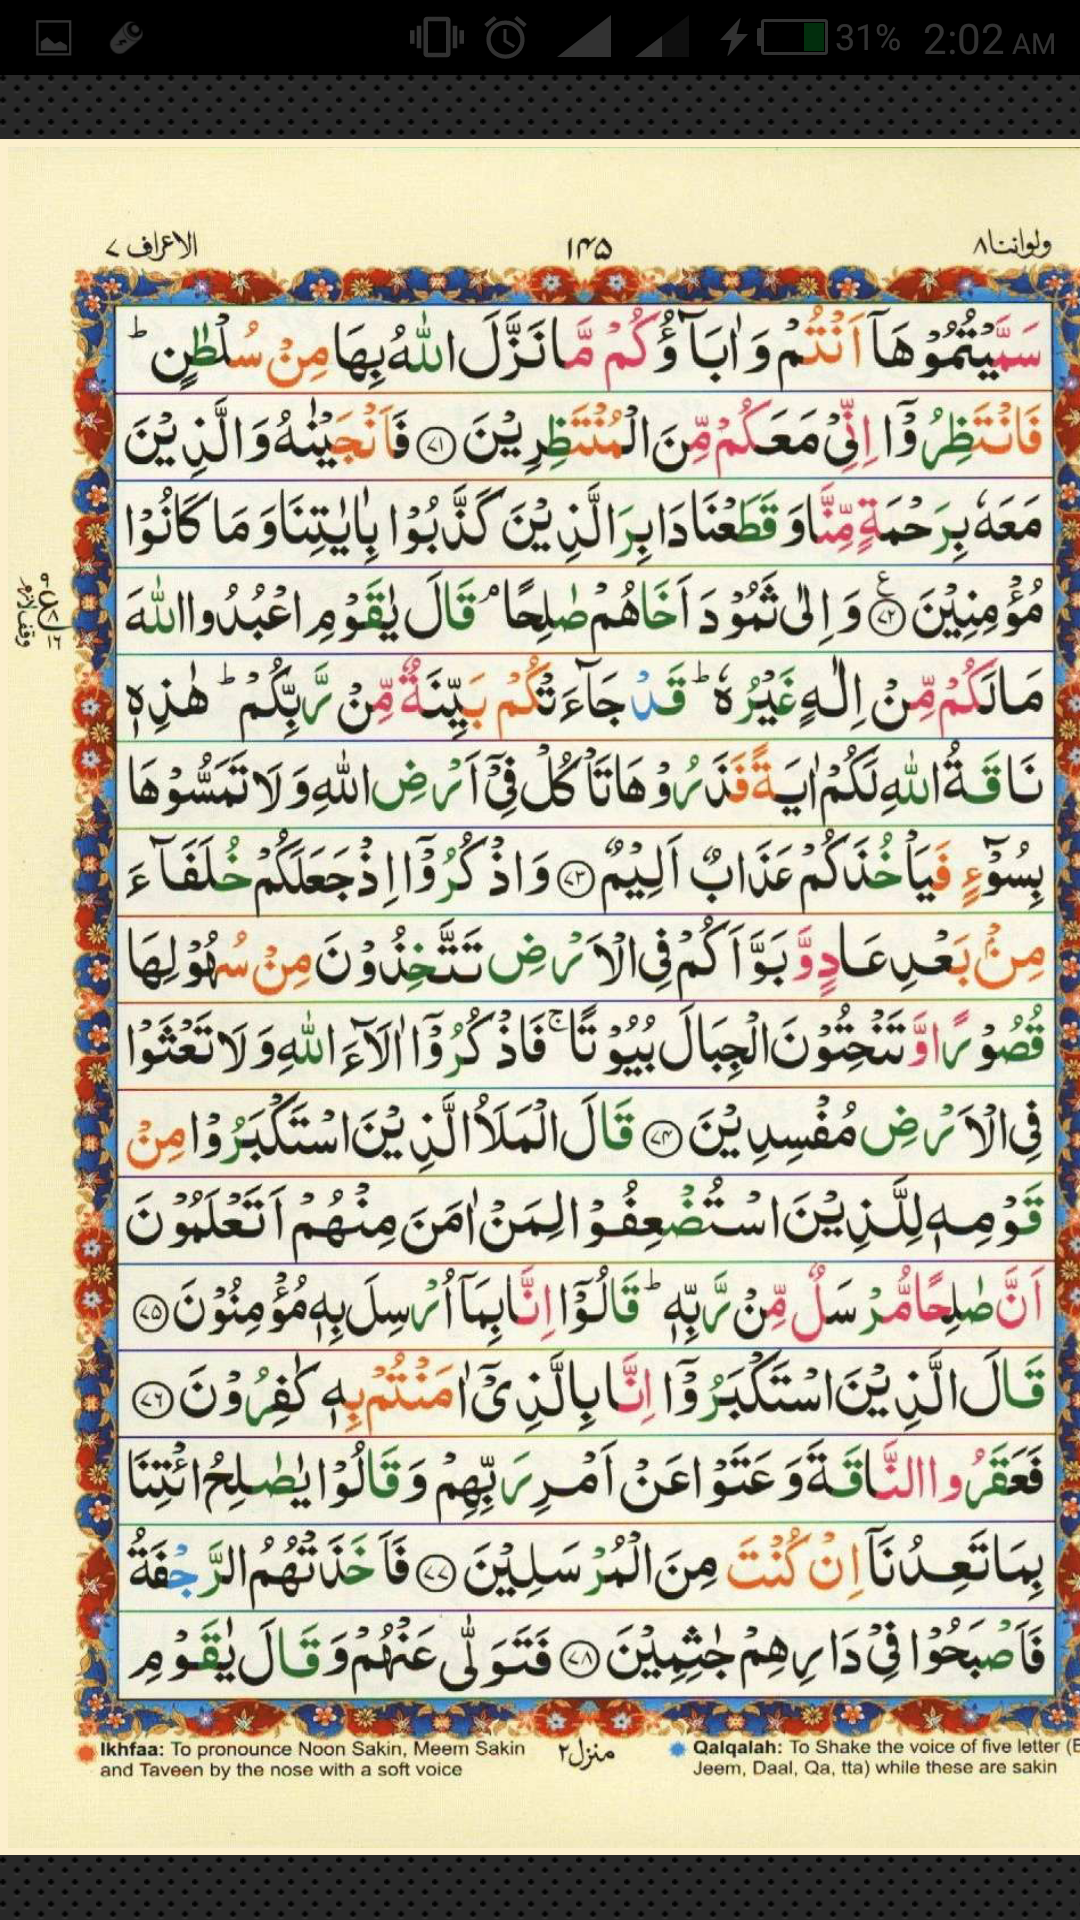 31% 2:02 AM
ولواننا ۸ ۱۴۵ الاعراف ۷
سَمَّيْتُمُوْهَاۤ اَنْتُمْ وَ اٰبَآؤُكُمْ مَّا نَزَّلَ اللّٰهُ بِهَا مِنْ سُلْطٰنٍ ؕ
فَانْتَظِرُوْۤا اِنِّیْ مَعَكُمْ مِّنَ الْمُنْتَظِرِيْنَ ﴿۷۱﴾ فَاَنْجَيْنٰهُ وَ الَّذِيْنَ
مَعَهٗ بِرَحْمَةٍ مِّنَّا وَ قَطَعْنَا دَابِرَ الَّذِيْنَ كَذَّبُوْا بِاٰيٰتِنَا وَ مَا كَانُوْا
مُؤْمِنِيْنَ ﴿۷۲﴾ ع وَ اِلٰی ثَمُوْدَ اَخَاهُمْ صٰلِحًا ۘ قَالَ يٰقَوْمِ اعْبُدُوا اللّٰهَ
وقف لازم
۱۶
مَا لَكُمْ مِّنْ اِلٰهٍ غَيْرُهٗ ؕ قَدْ جَآءَتْكُمْ بَيِّنَةٌ مِّنْ رَّبِّكُمْ ؕ هٰذِهٖ
نَاقَةُ اللّٰهِ لَكُمْ اٰيَةً فَذَرُوْهَا تَاْكُلْ فِیْۤ اَرْضِ اللّٰهِ وَ لَا تَمَسُّوْهَا
بِسُوْٓءٍ فَيَاْخُذَكُمْ عَذَابٌ اَلِيْمٌ ﴿۷۳﴾ وَ اذْكُرُوْۤا اِذْ جَعَلَكُمْ خُلَفَآءَ
مِنْۢ بَعْدِ عَادٍ وَّ بَوَّاَكُمْ فِی الْاَرْضِ تَتَّخِذُوْنَ مِنْ سُهُوْلِهَا
قُصُوْرًا وَّ تَنْحِتُوْنَ الْجِبَالَ بُيُوْتًا ۚ فَاذْكُرُوْۤا اٰلَآءَ اللّٰهِ وَ لَا تَعْثَوْا
فِی الْاَرْضِ مُفْسِدِيْنَ ﴿۷۴﴾ قَالَ الْمَلَاُ الَّذِيْنَ اسْتَكْبَرُوْا مِنْ
قَوْمِهٖ لِلَّذِيْنَ اسْتُضْعِفُوْا لِمَنْ اٰمَنَ مِنْهُمْ اَتَعْلَمُوْنَ
اَنَّ صٰلِحًا مُّرْسَلٌ مِّنْ رَّبِّهٖ ؕ قَالُوْۤا اِنَّا بِمَاۤ اُرْسِلَ بِهٖ مُؤْمِنُوْنَ ﴿۷۵﴾
قَالَ الَّذِيْنَ اسْتَكْبَرُوْۤا اِنَّا بِالَّذِیْۤ اٰمَنْتُمْ بِهٖ كٰفِرُوْنَ ﴿۷۶﴾
فَعَقَرُوا النَّاقَةَ وَ عَتَوْا عَنْ اَمْرِ رَبِّهِمْ وَ قَالُوْا يٰصٰلِحُ ائْتِنَا
بِمَا تَعِدُنَاۤ اِنْ كُنْتَ مِنَ الْمُرْسَلِيْنَ ﴿۷۷﴾ فَاَخَذَتْهُمُ الرَّجْفَةُ
فَاَصْبَحُوْا فِیْ دَارِهِمْ جٰثِمِيْنَ ﴿۷۸﴾ فَتَوَلّٰی عَنْهُمْ وَ قَالَ يٰقَوْمِ
Ikhfaa: To pronounce Noon Sakin, Meem Sakin
and Taveen by the nose with a soft voice
منزل۲
Qalqalah: To Shake the voice of five letter (
Jeem, Daal, Qa, tta) while these are sakin